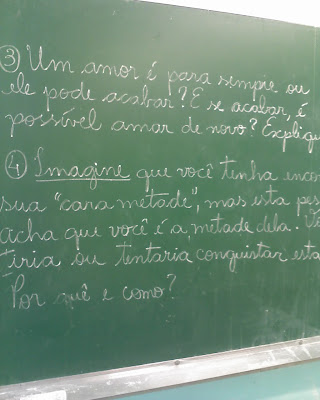 ③ Um amor é para sempre ou
ele pode acabar? E se acabar, é
possível amar de novo? Expliqu
④ Imagine que você tenha encon
sua "cara metade", mas esta pes
acha que você é a metade dela! Vo
tiria ou tentaria conquistar esta
Por quê e como?